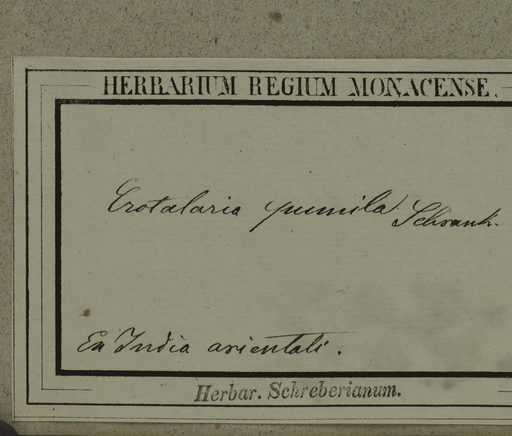 HERBARIUM REGIUM MONACENSE.
Crotalaria pumila Schrank.
Ex India orientali.
Herbar. Schreberianum.